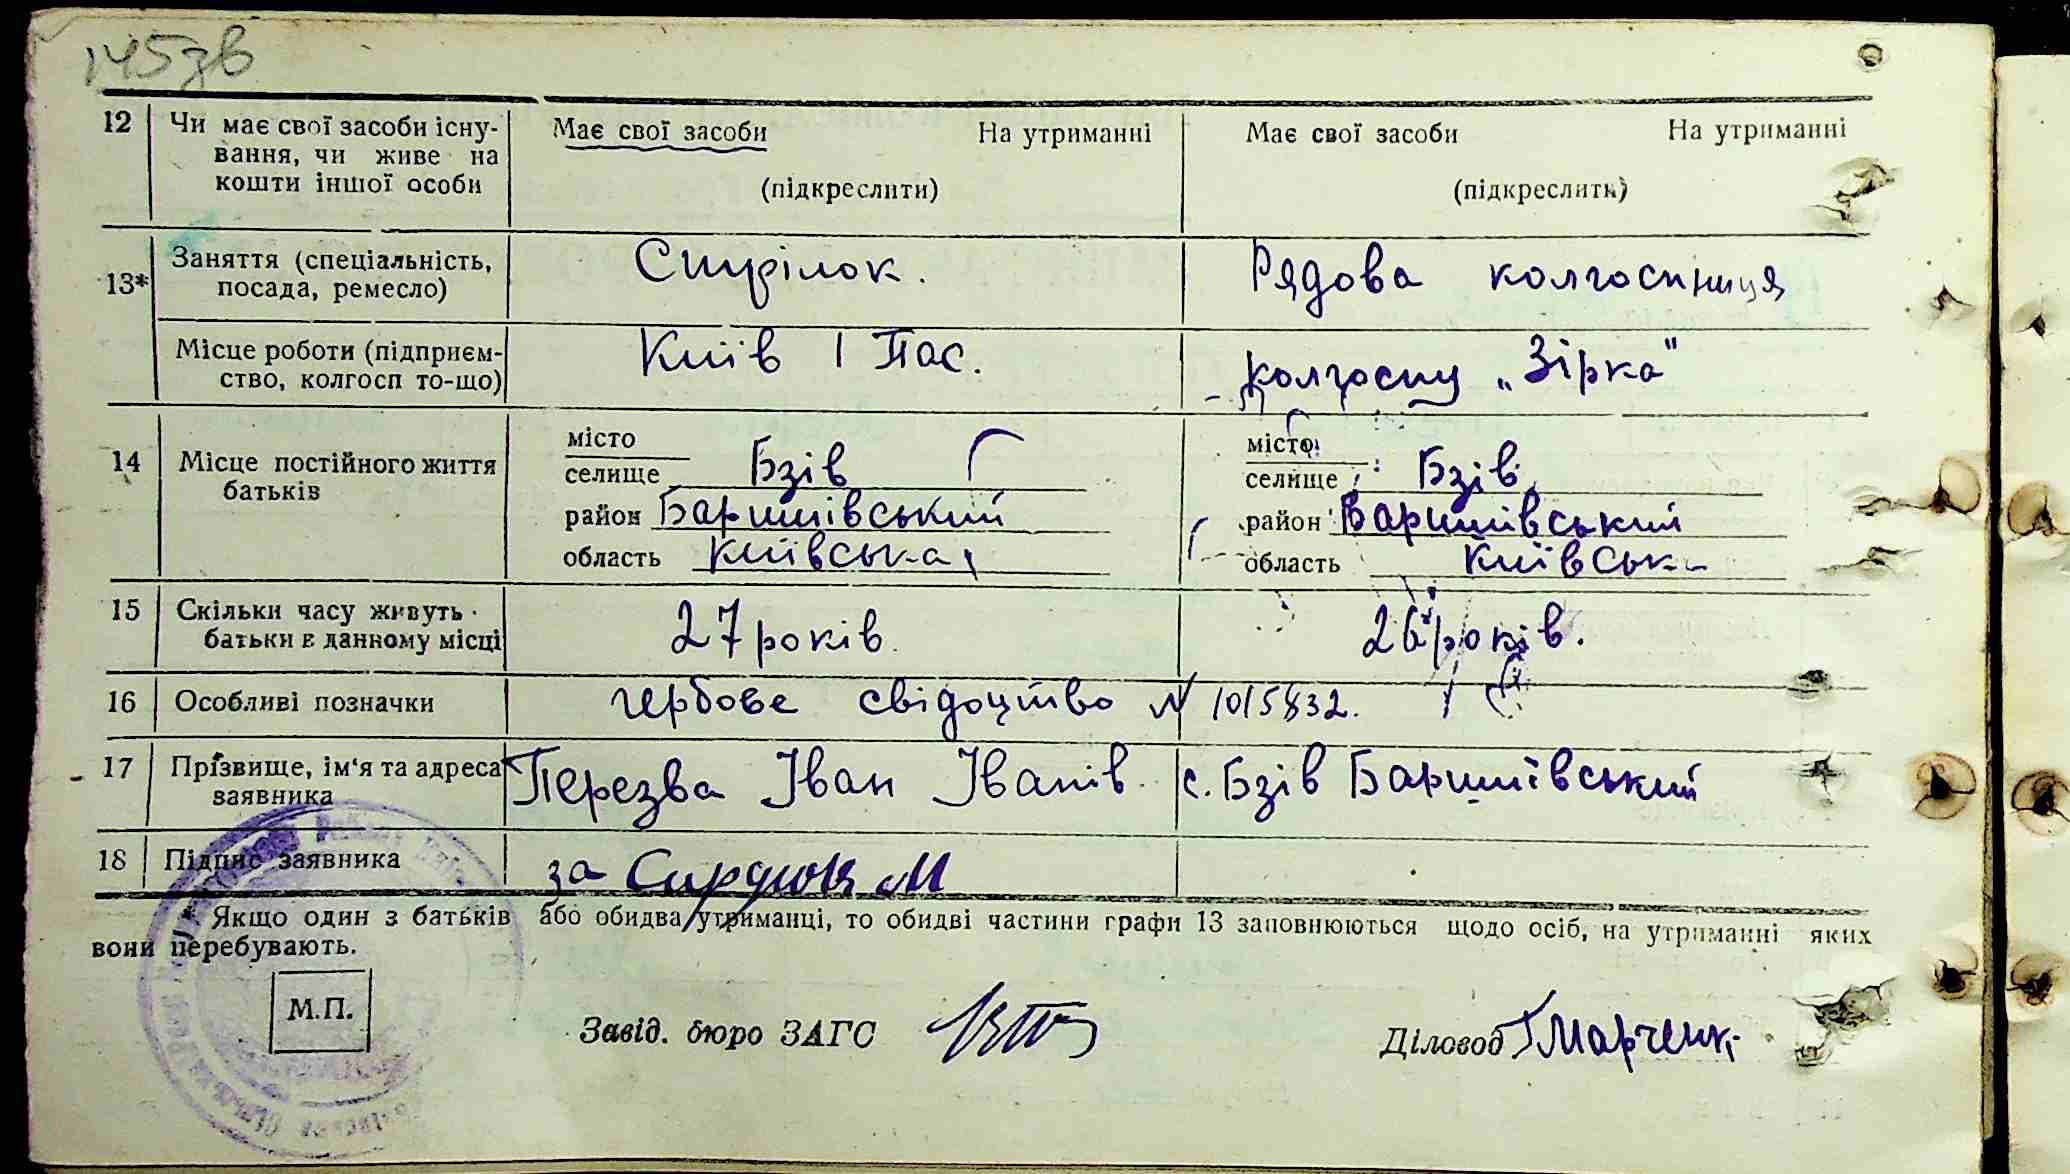 145зв
12 Чи має свої засоби існу- Має свої засоби На утриманні Має свої засоби На утриманні
вання, чи живе на
кошти іншої особи (підкреслити) (підкреслити)
13* Заняття (спеціальність, Стрілок. Рядова колгоспниця
посада, ремесло)
Місце роботи (підприєм- Київ 1 Пас. колгоспу „Зірка"
ство, колгосп то-що)
14 Місце постійного життя місто місто
батьків селище Бзів селище Бзів
район Баришівський район Баришівський
область Київська область Київська
15 Скільки часу живуть 27 років. 26 років.
батьки в данному місці
16 Особливі позначки гербове свідоцтво № 1015832.
17 Прізвище, ім'я та адреса Перезва Іван Іванів. с. Бзів Баришівський
заявника
18 Підпис заявника за
Якщо один з батьків або обидва утриманці, то обидві частини графи 13 заповнюються щодо осіб, на утриманні яких
вони перебувають.
М.П.
Завід. бюро ЗАГС Діловод Марченк